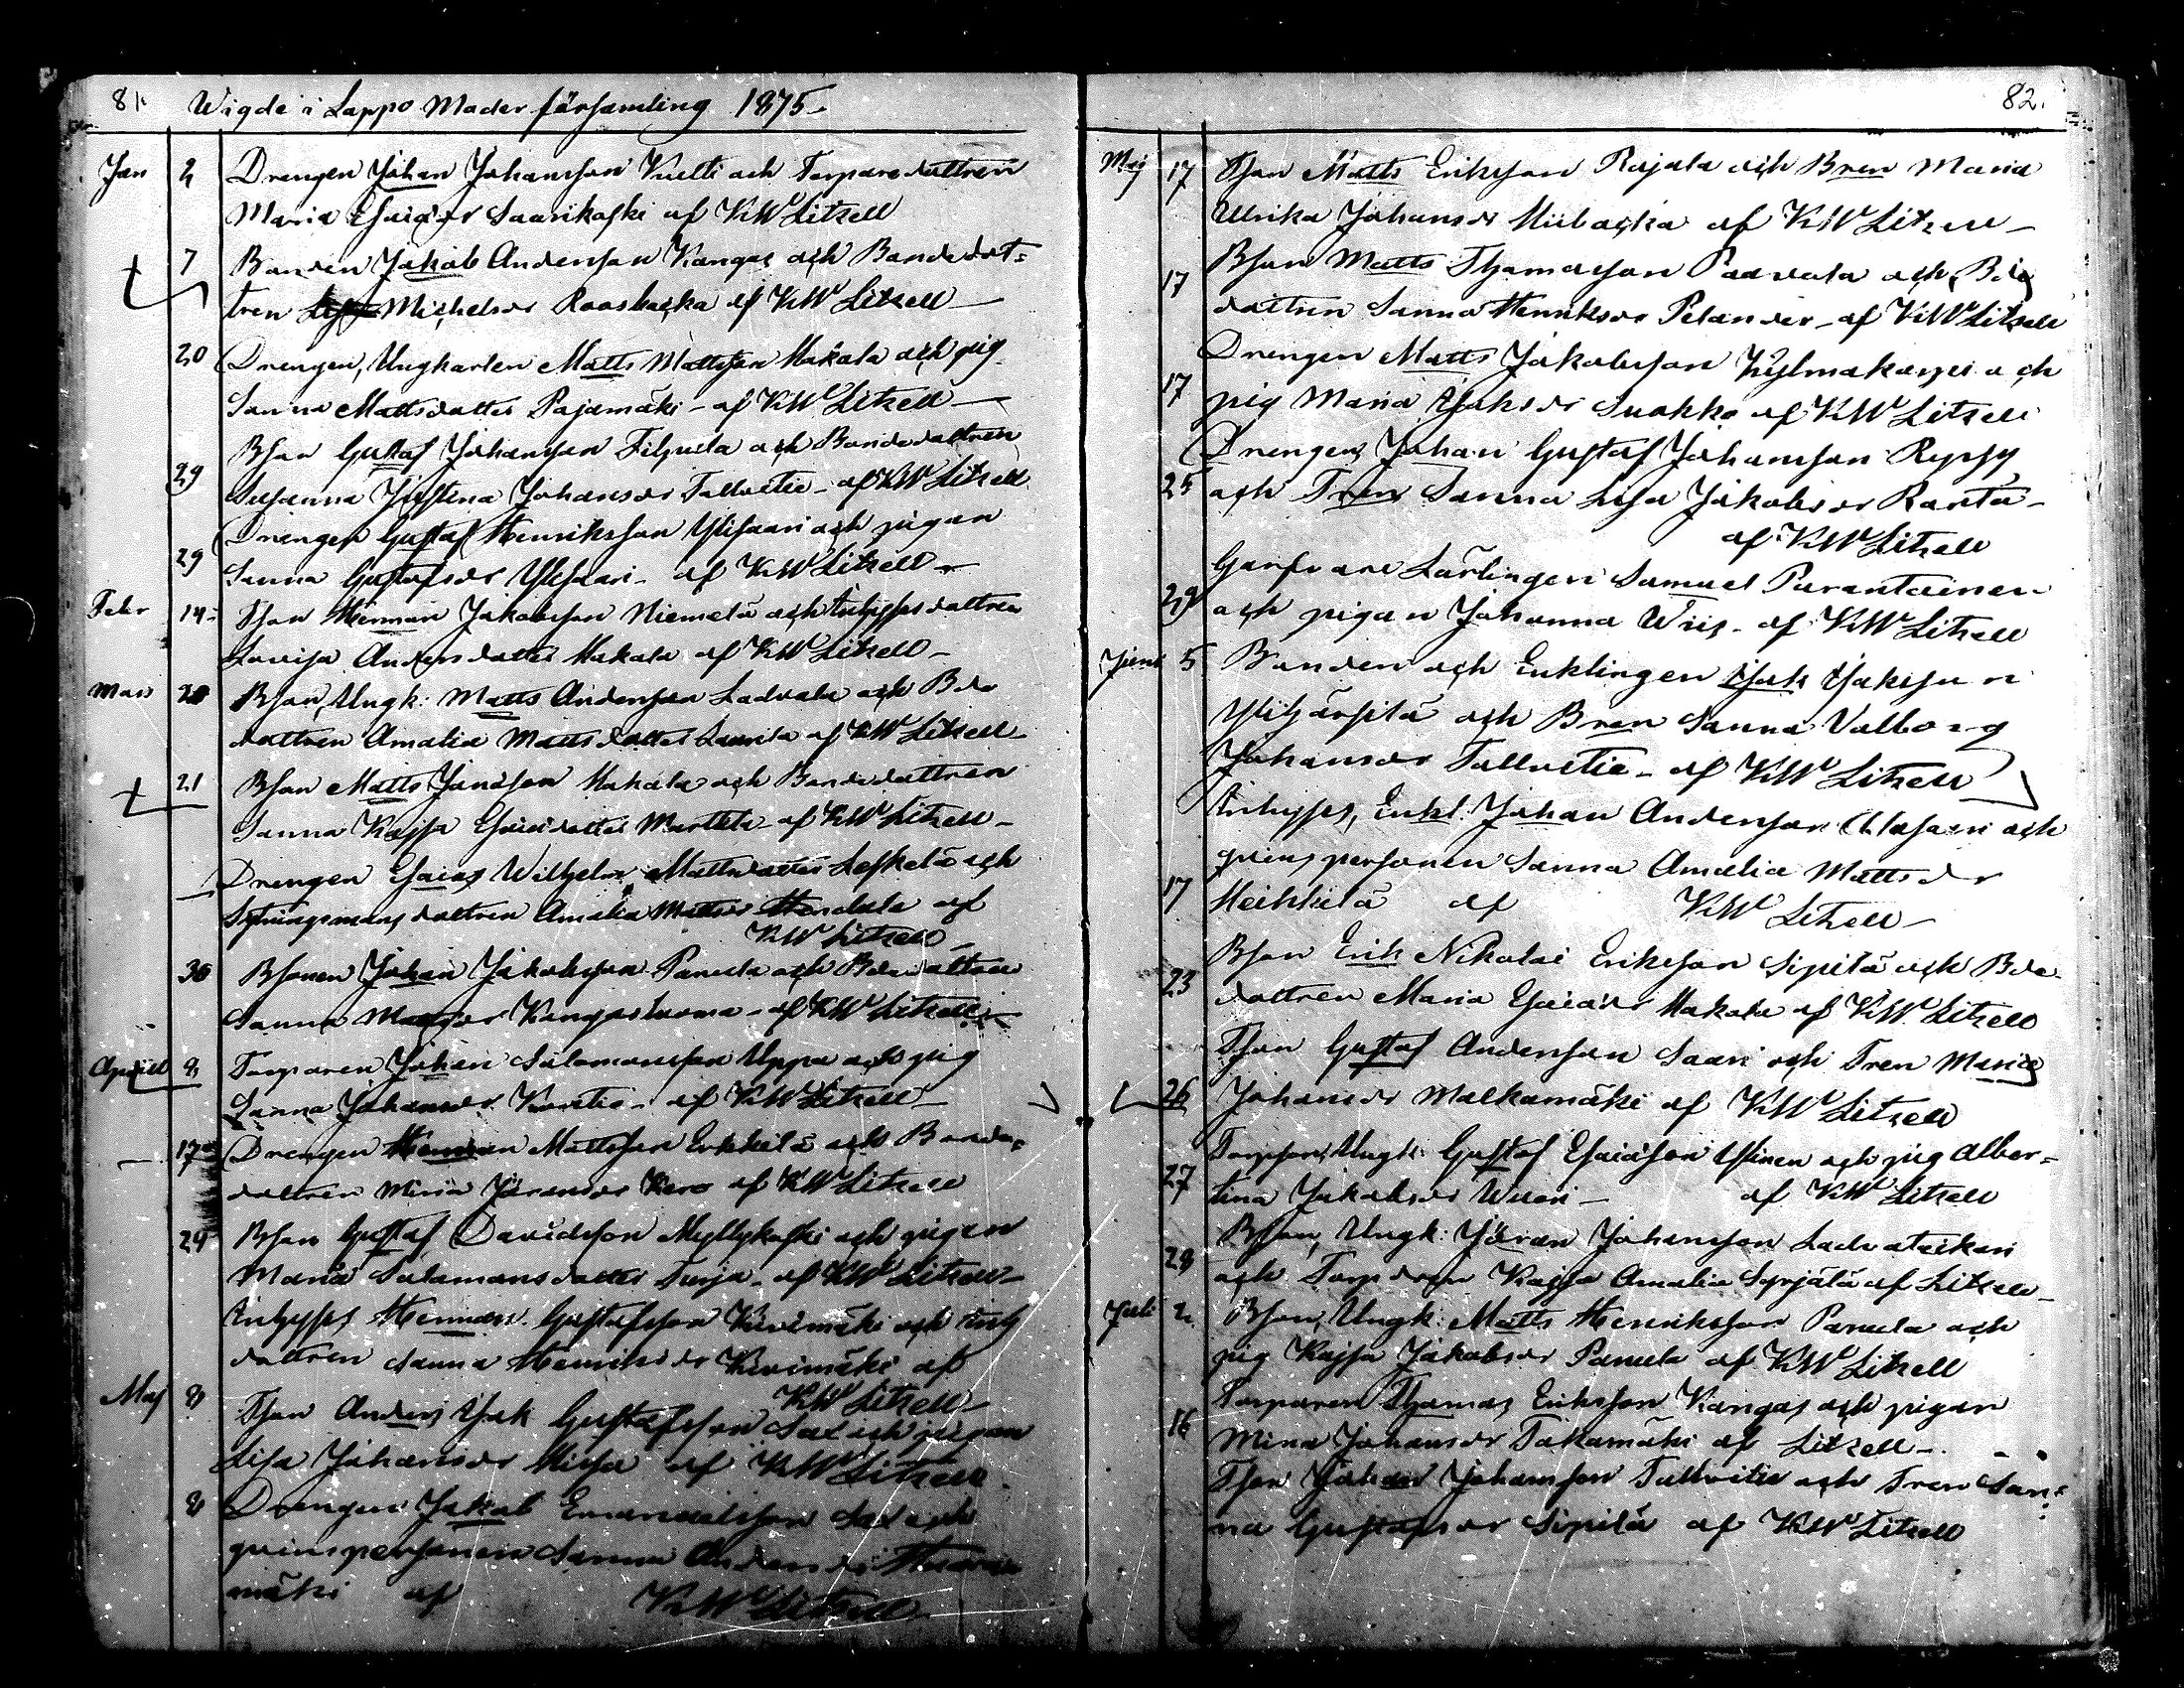 81. Wigde i Lappo Moder församling 1875
Jan 2 Drengen Johan Johansson Kuelti och Torparedottren
Maria Esaiædr Saarikoski af KWLitzell
7 Bonden Jakob Andersson Kangas och Bondedot=
tren Michelsdr Raasbacka af KWLitzell
20 Drengen, Ungkarlen Matts Mattsson Makala och pig
Sanna Mattsdotter Pajamäki - af KWLitzell
Bson Gustaf Johansson Filpula och Bondedottren
29 Susanna Justina Johansdr Tallvitie - af KWLitzell
Drengen Gustaf Henriksson Ylisaari och pigan
29 Sanna Gustafsdr Ylisaari - af KWLitzell
Febr 14 Tson Herman Jakobsson Niemelä och Inhysesdottren
Lovisa Andersdotter Makala af KWLitzell -
Mars 20 Bson, Ungk: Matts Andersson Ladvala och Bde
dottren Amalia Mattsdotter Laurila af KWLitzell
21 Bson Matts Jonasson Makala och Bondedottren
Sanna Kajsa Esaiædotter Marttila af KWLitzell -
Drengen Esaias Wilhelm Mattsdotter Leskelä och
Sytningsmansdottren Amalia Mattsdr Handola af
KWLitzell
30 Bsonen Johan Jakobsson Panula och Bdedottren
Sanna Kangasluoma - af KWLitzell
Aprill 8 Torparen Johan Salomonsson Uppa och pig
Sanna Johansdr Kovitie - af KWLitzell -
17 Drengen Herman Mattsson Erkkilä och Bonde=
dottren Maria Göransdr Kero af KWLitzell
29 Bson Gustaf Davidsson Myllykoski och pigan
Maria Salomonsdotter Turja - af KWLitzell -
Inhyses Herman Gustafsson Kivimäki och Inhys
dottren Sanna Henriksdr Kivimäki af
KWLitzell -
Maj 8 Tson Anders Isak Gustafsson Sax och pigan
Lisa Johansdr Hissa af KWLitzell
8 Drengen Jakob Emanuelsson Sax och
qvinspersonen Sanna Andersdr
mäki af KWLitzell
82.
Maj 17 Tson Matts Eriksson Rajala och Bren Maria
Ulrika Johansdr Hiibacka af KWLitzell -
17 Bson Matts Thomasson Paavola och Bde
dottren Sanna Henriksdr Pelander - af KWLitzell
Drengen Matts Jakobsson Kylmakarpi och
17 pig Maria Isaksdr Suokko af KWLitzell
Drengen Johan Gustaf Johansson Rypsy
25 och Tren Sanna Lisa Jakobsdr Ranta -
af KWLitzell
Garfvare Lärlingen Samuel Parantainen
29 och pigan Johanna Wiis - af KWLitzell
Juni 5 Bonden och Enklingen Isak Isaksson
Ylihärsilä och Bren Sanna Valborg
Johansdr Tallvitie - af KWLitzell
Inhyses, Enkl: Johan Andersson Alasaari och
qvinspersonen Sanna Amalia Mattsdr
17 Heikkilä af KWLitzell -
Bson Erik Nikolai Eriksson Sipilä och Bde
23 dottren Maria Esaiædr Makala af KWLitzell
Tson Gustaf Andersson Saari och Tren Maria
26 Johansdr Malkamäki af KWLitzell
Torpson, Ungk: Gustaf Esaiæson Ylinen och pig Alber=
27 tina Jakobsdr Wuori - af KWLitzell
Bson, Ungk: Göran Johansson Ladvataikari
28 och Torpdren Kajsa Amalia Syrjälä af Litzell -
Juli 2 Bson, Ungk: Matts Henriksson Panula och
pig Kajsa Jakobsdr Panula af KWLitzell
Torparen Thomas Eriksson Kangas och pigan
16 Mina Johansdr Takamäki af Litzell -
Tson Johan Johansson Tallvitie och Tren San=
na Gustafsdr Sipilä af KWLitzell